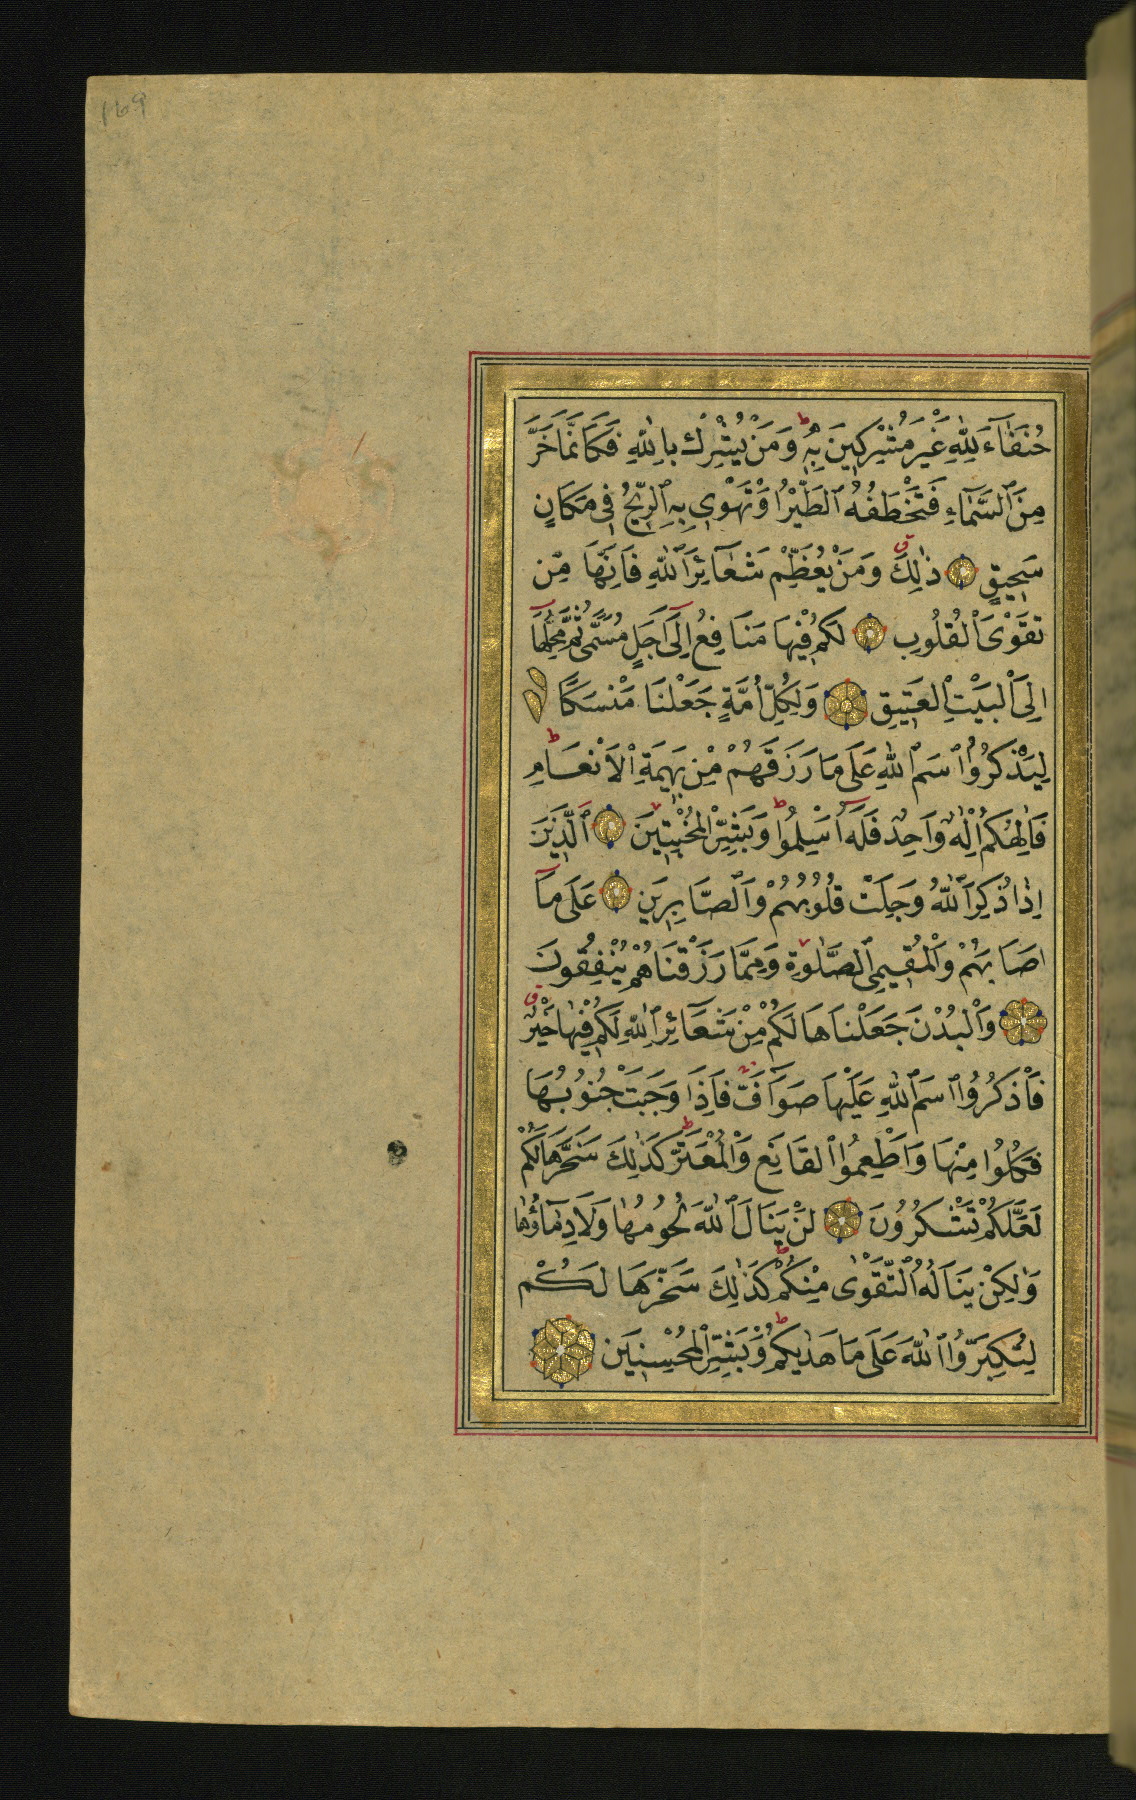 169
حُنَفَآءَ لِلّٰهِ غَيْرَ مُشْرِكٖينَ بِهٖ وَمَنْ يُشْرِكْ بِاللّٰهِ فَكَاَنَّمَا خَرَّ
مِنَ السَّمَآءِ فَتَخْطَفُهُ الطَّيْرُ اَوْ تَهْوٖى بِهِ الرّٖيحُ فٖى مَكَانٍ
سَحٖيقٍ ذٰلِكَ وَمَنْ يُعَظِّمْ شَعَآئِرَ اللّٰهِ فَاِنَّهَا مِنْ
تَقْوَى الْقُلُوبِ لَكُمْ فٖيهَا مَنَافِعُ اِلٰٓى اَجَلٍ مُسَمًّى ثُمَّ مَحِلُّهَآ
اِلَى الْبَيْتِ الْعَتٖيقِ وَلِكُلِّ اُمَّةٍ جَعَلْنَا مَنْسَكًا
لِيَذْكُرُوا اسْمَ اللّٰهِ عَلٰى مَا رَزَقَهُمْ مِنْ بَهٖيمَةِ الْاَنْعَامِ
فَاِلٰهُكُمْ اِلٰهٌ وَاحِدٌ فَلَهٗٓ اَسْلِمُوا وَبَشِّرِ الْمُخْبِتٖينَ اَلَّذٖينَ
اِذَا ذُكِرَ اللّٰهُ وَجِلَتْ قُلُوبُهُمْ وَالصَّابِرٖينَ عَلٰى مَآ
اَصَابَهُمْ وَالْمُقٖيمِى الصَّلٰوةِ وَمِمَّا رَزَقْنَاهُمْ يُنْفِقُونَ
وَالْبُدْنَ جَعَلْنَاهَا لَكُمْ مِنْ شَعَآئِرِ اللّٰهِ لَكُمْ فٖيهَا خَيْرٌ
فَاذْكُرُوا اسْمَ اللّٰهِ عَلَيْهَا صَوَآفَّ فَاِذَا وَجَبَتْ جُنُوبُهَا
فَكُلُوا مِنْهَا وَاَطْعِمُوا الْقَانِعَ وَالْمُعْتَرَّ كَذٰلِكَ سَخَّرْنَاهَا لَكُمْ
لَعَلَّكُمْ تَشْكُرُونَ لَنْ يَنَالَ اللّٰهَ لُحُومُهَا وَلَا دِمَآؤُهَا
وَلٰكِنْ يَنَالُهُ التَّقْوٰى مِنْكُمْ كَذٰلِكَ سَخَّرَهَا لَكُمْ
لِتُكَبِّرُوا اللّٰهَ عَلٰى مَا هَدٰيكُمْ وَبَشِّرِ الْمُحْسِنٖينَ